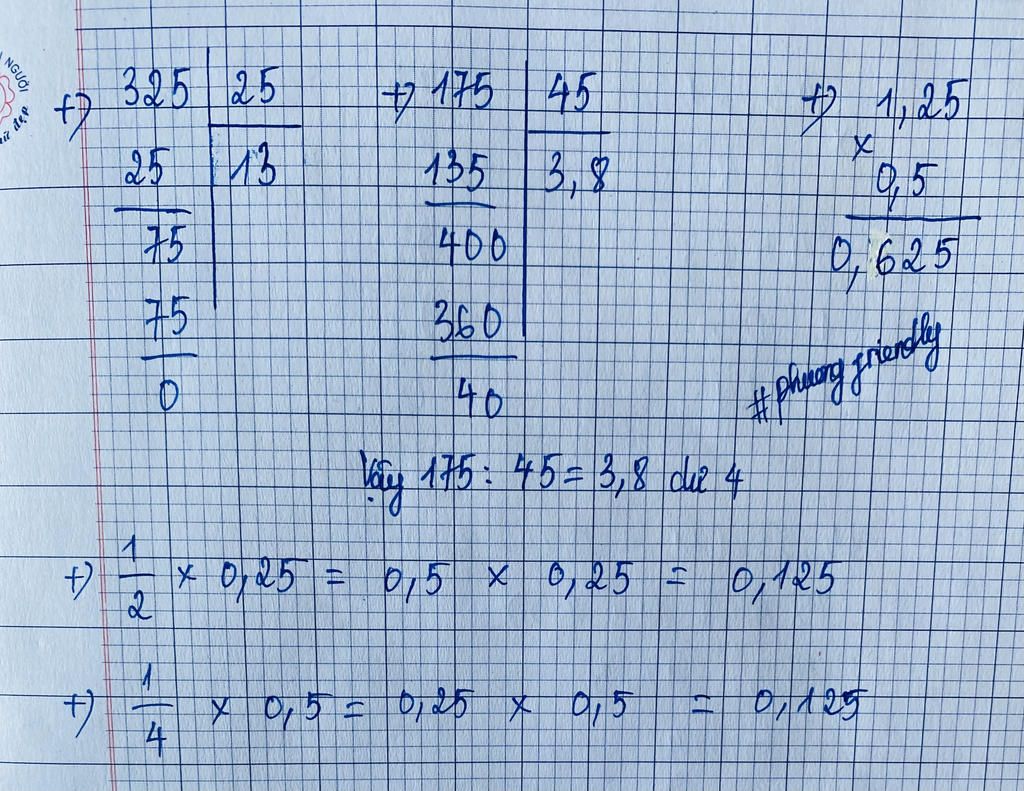 NGƯỜI
+) 325 | 25 +) 175 | 45 +) 1,25
×
25 | 13 135 | 3,8 0,5
75 400 0,625
75 360
0 40
#phuongfriendly
Vậy 175 : 45 = 3,8 dư 4
+) 1/2 × 0,25 = 0,5 × 0,25 = 0,125
+) 1/4 × 0,5 = 0,25 × 0,5 = 0,125